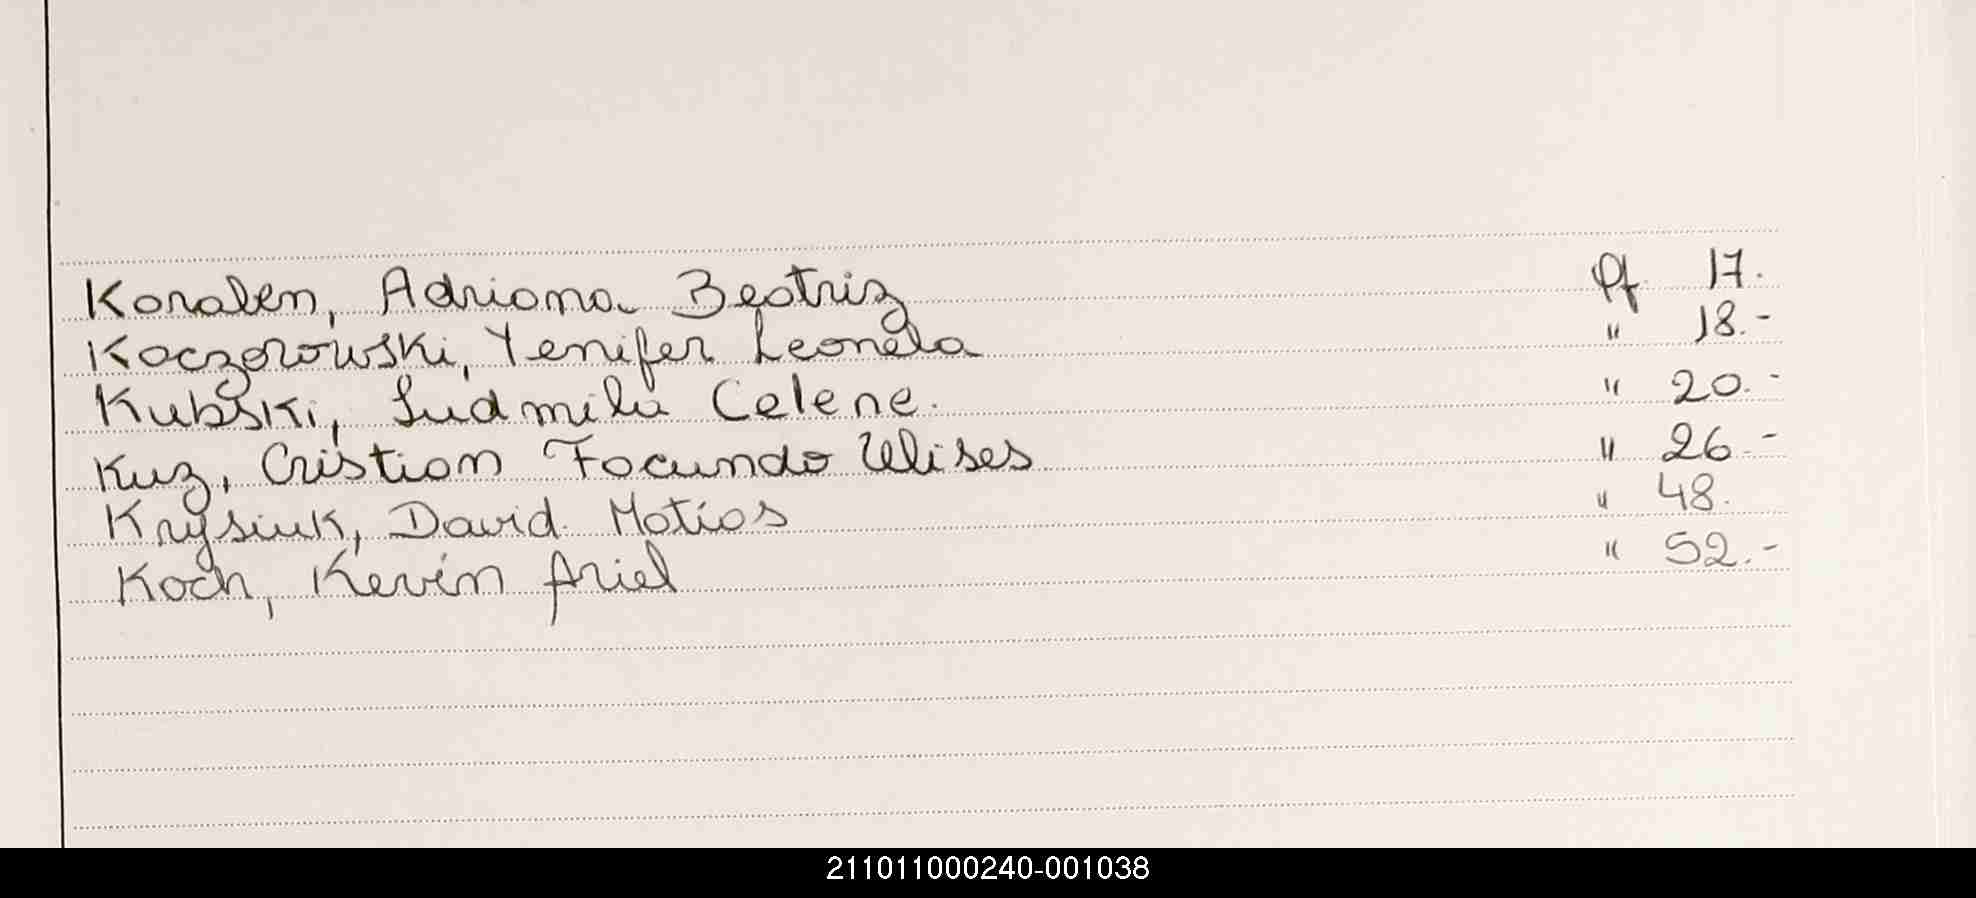 Koralen, Adriana Beatriz Pf 17.
Kaczorowski, Yenifer Leonela " 18.-
Kubski, Ludmila Celene. " 20.-
Kuz, Cristian Facundo Ulises " 26.-
Krysiuk, David Matias " 48.
Koch, Kevin Ariel " 52.-
211011000240-001038